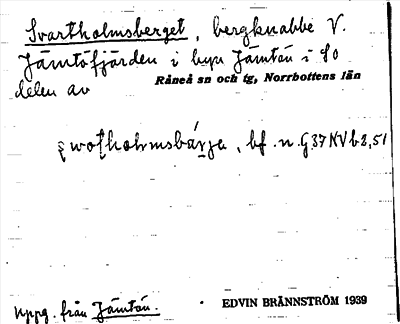 Svartholmsberget, bergknabbe V.
Jämtöfjärden i byn Jämtön i SO
delen av Råneå sn och tg, Norrbottens län
bf. n. G37 NV b 2,51
Uppg. från Jämtön. EDVIN BRÄNNSTRÖM 1939